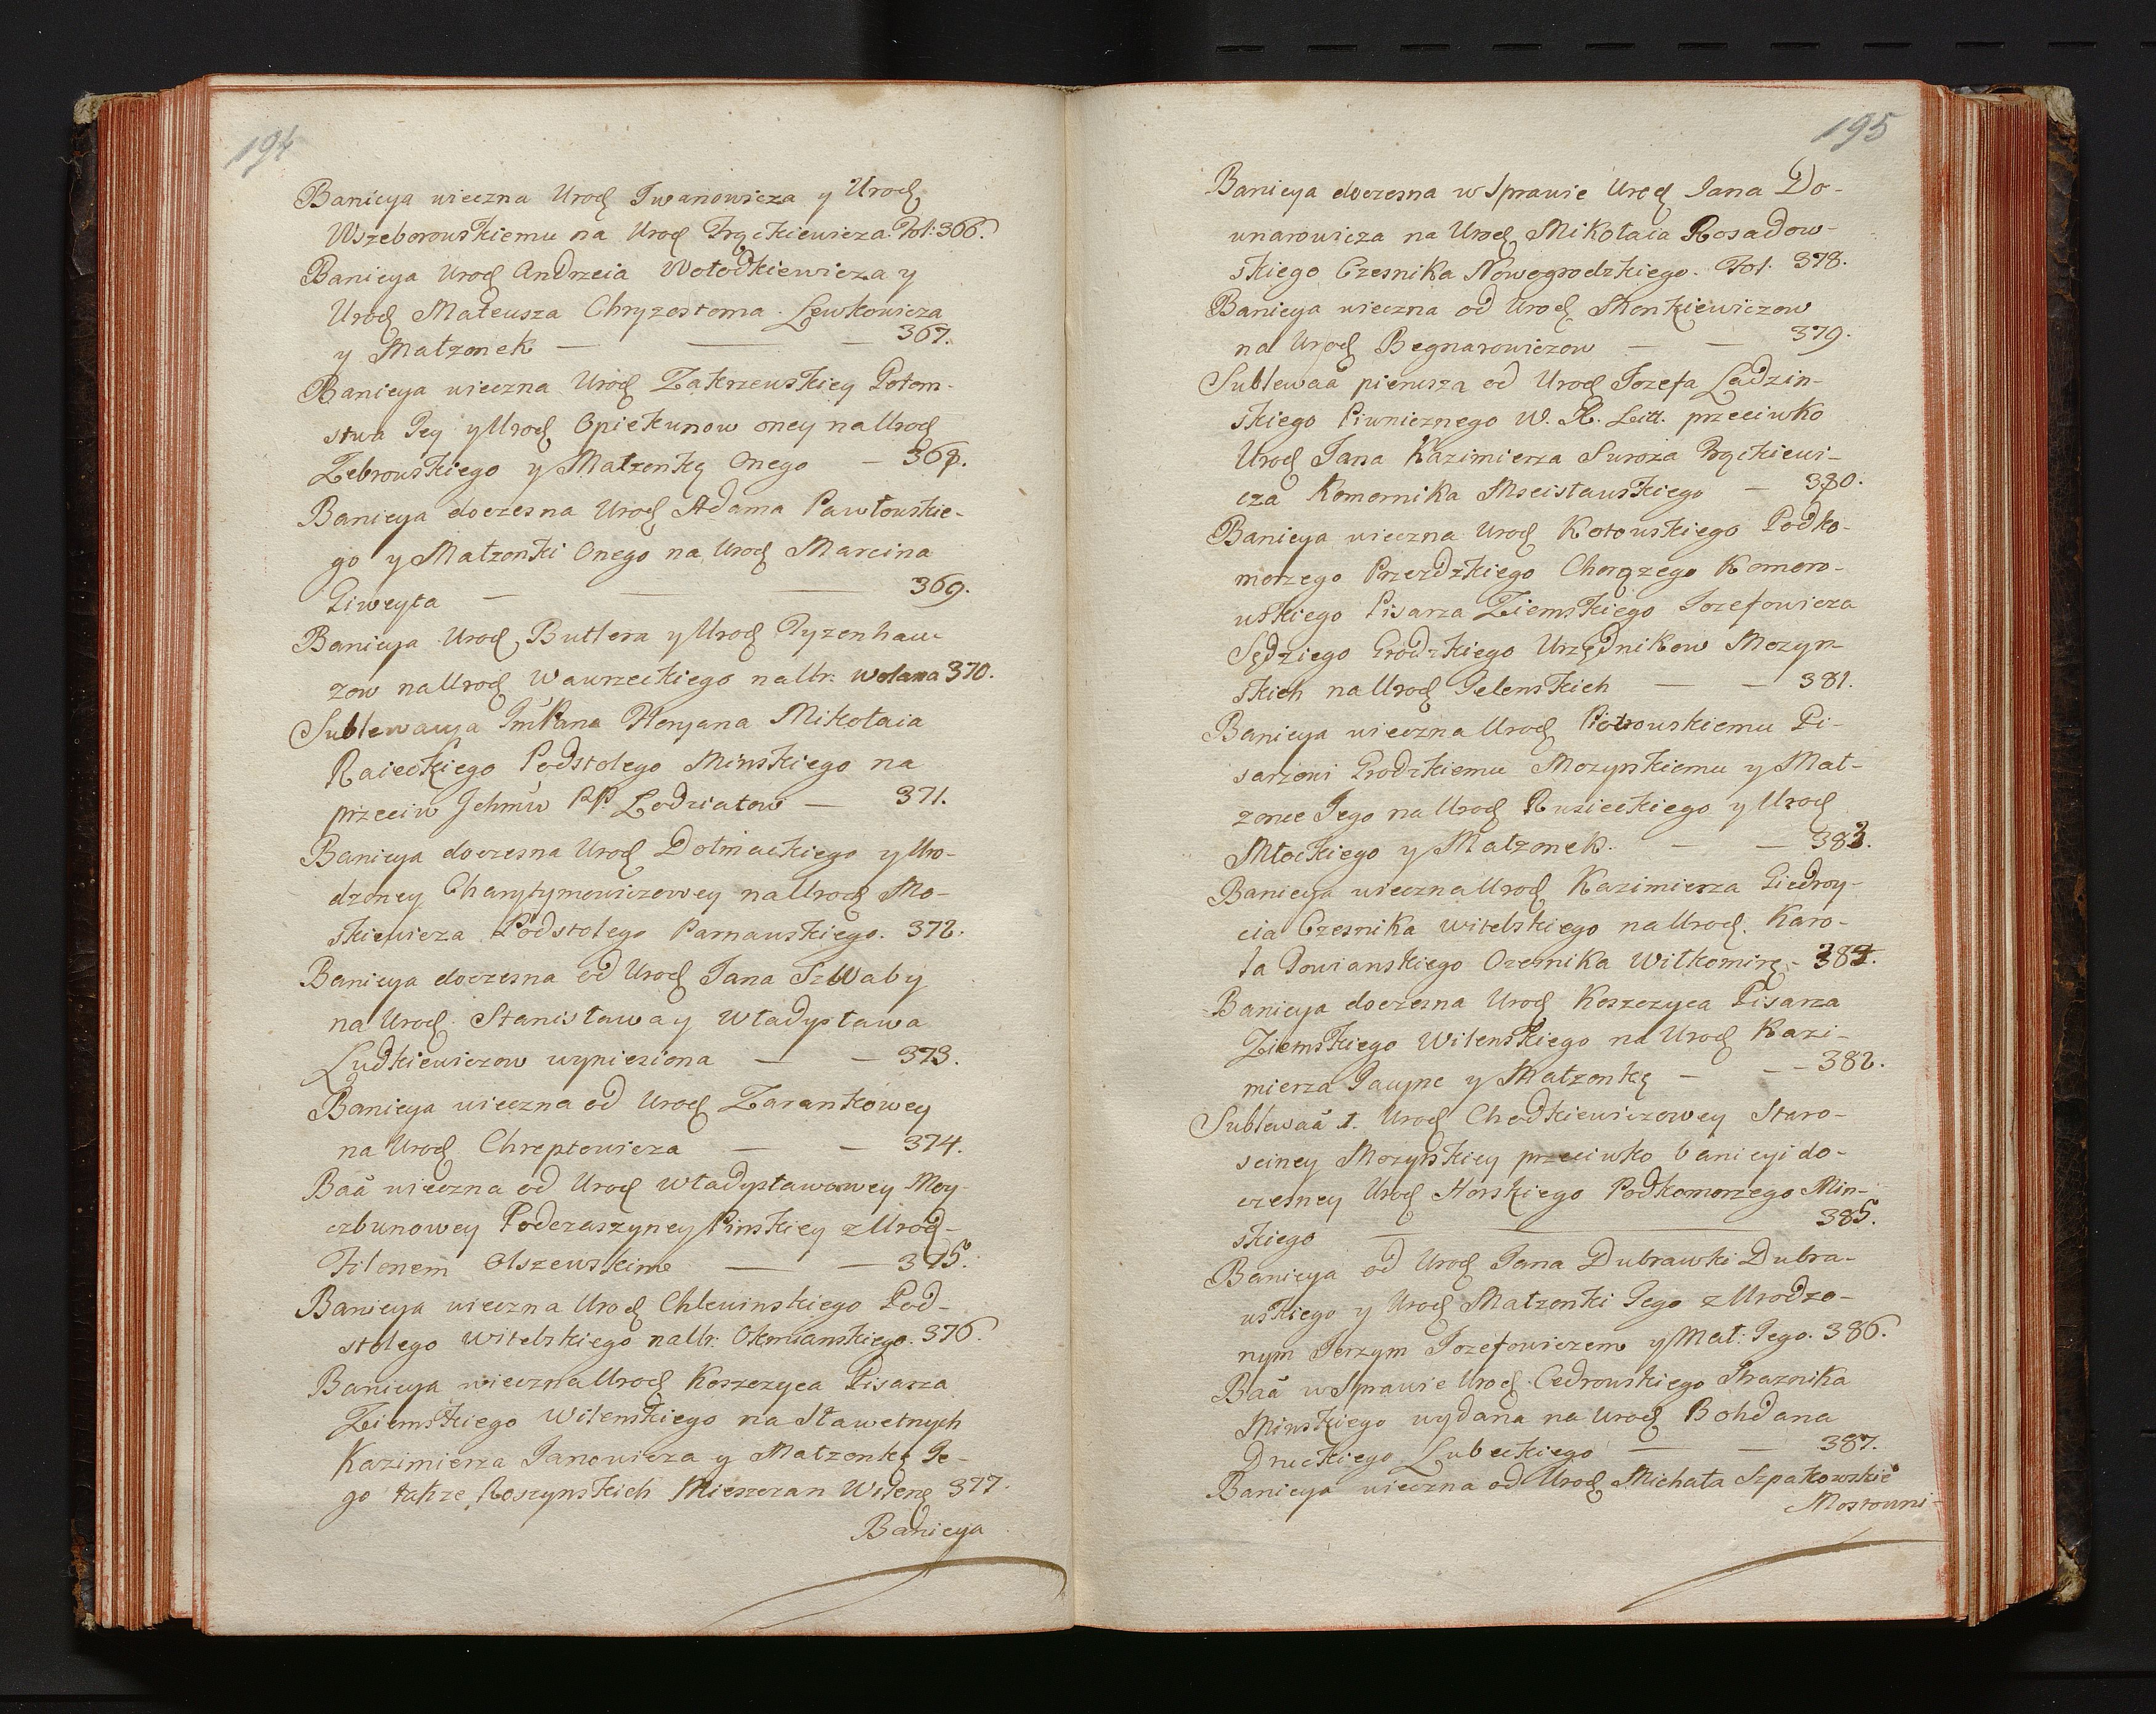 194
Banicya wieczna Urodz Iwanowicza y Urodz
Wszeborowskiemu na Urodz Frąckiewicza. Fol: 366.
Banicya Urodz Andrzeia Wołodkiewicza y
Urodz Mateusza Chryzostoma Lewkowicza
y Małżonek — — — 367.
Banicya wieczna Urodz Zakrzewskiey Potom-
stwa Jey y Urodz Opiekunow oney na Urodz
Zebrowskiego y Małżonkę Onego — 368.
Banicya doczesna Urodz Adama Pawłowskie-
go y Małżonki Onego na Urodz Marcina
Giweyta — — — 369.
Banicya Urodz Butlera y Urodz Tyzenhau-
zow na Urodz Wawrzeckiego na Ur: Wolana 370.
Sublewacya Jm Pana Heryana Mikołaia
Raieckiego Podstolego Minskiego na
przeciw Jchmw PP. Lodziatow — 371.
Banicya doczesna Urodz Dolmackiego y Uro-
dzoney Charytymowiczowey na Urodz Mo-
skiewicza Podstolego Parnawskiego. 372.
Banicya doczesna od Urodz Jana Szwaby
na Urodz. Stanisława y Władysława
Ludkiewiczow wyniesiona — — 373.
Banicya wieczna od Urodz Zarankowey
na Urodz Chreptowicza — — 374.
Baa wieczna od Urodz Władysławowey Moy-
czbunowey Podczaszyney Pinskiey z Urodz-
Filonem Olszewskim — — 375.
Banicya wieczna Urodz Chlewinskiego Pod-
stolego Witebskiego na Ur: Okmianskiego. 376.
Banicya wieczna Urodz Koszczyca Pisarza
Ziemskiego Wilenskiego na Sławetnych
Kazimierza Janowicza y Małżonkę Je-
go także Roszynskich Mieszczan Wilenę 377.
Banicya
195
Banicya doczesna w Sprawie Urodz Jana Do-
unarowicza na Urodz Mikołaia Rosadow-
skiego Czesnika Nowogrodzkiego. Fol. 378.
Banicya wieczna od Urodz Monkiewiczow
na Urodz Begnarowiczow — — 379.
Sublewaa pierwsza od Urodz Jozefa Ladzin-
skiego Piwnicznego W. X. Litt. przeciwko
Urodz Jana Kazimierza Suroża Frąckiewi-
cza Komornika Mscisławskiego — 380.
Banicya wieczna Urodz Kotowskiego Podko-
morzego Przezdzkiego Chorążego Komoro-
wskiego Pisarza Ziemskiego Jozefowicza
Sędziego Grodzkiego Urzędnikow Mozyr-
skich na Urodz Jelenskich — — 381.
Banicya wieczna Urodz Piotrowskiemu Pi-
sarzowi Grodzkiemu Mozyrskiemu y Mał-
zonce Jego na Urodz Rusieckiego y Urodz
Młockiego y Małżonek. — — 383.
Banicya wieczna Urodz Kazimierza Giedroy-
cia Czesnika witebskiego na Urodz. Karo-
la Dowianskiego Czesnika Wiłkomirę - 384.
Banicya doczesna Urodz Koszczyca Pisarza
Ziemskiego Wilenskiego na Urodz Kazi-
mierza Jacyne y Małżonkę — — 382.
Sublewaa 1. Urodz Chodkiewiczowey Staro-
sciney Mozyrskiey przeciwko banicyi do-
czesney Urodz Horskiego Podkomorzego Min-
skiego — 385.
Banicya od Urodz Jana Dubrawki Dubra-
wskiego y Urodz Małżonki Jego z Urodzo-
nym Jerzym Jozefowiczem y Mał: Jego. 386.
Baa w Sprawie Urodz. Cedrowskiego Straznika
Minskiego wydana na Urodz Bohdana
Druckiego Lubeckiego — — 387.
Banicya wieczna od Urodz Michała Szpakowskie
Mostowni-